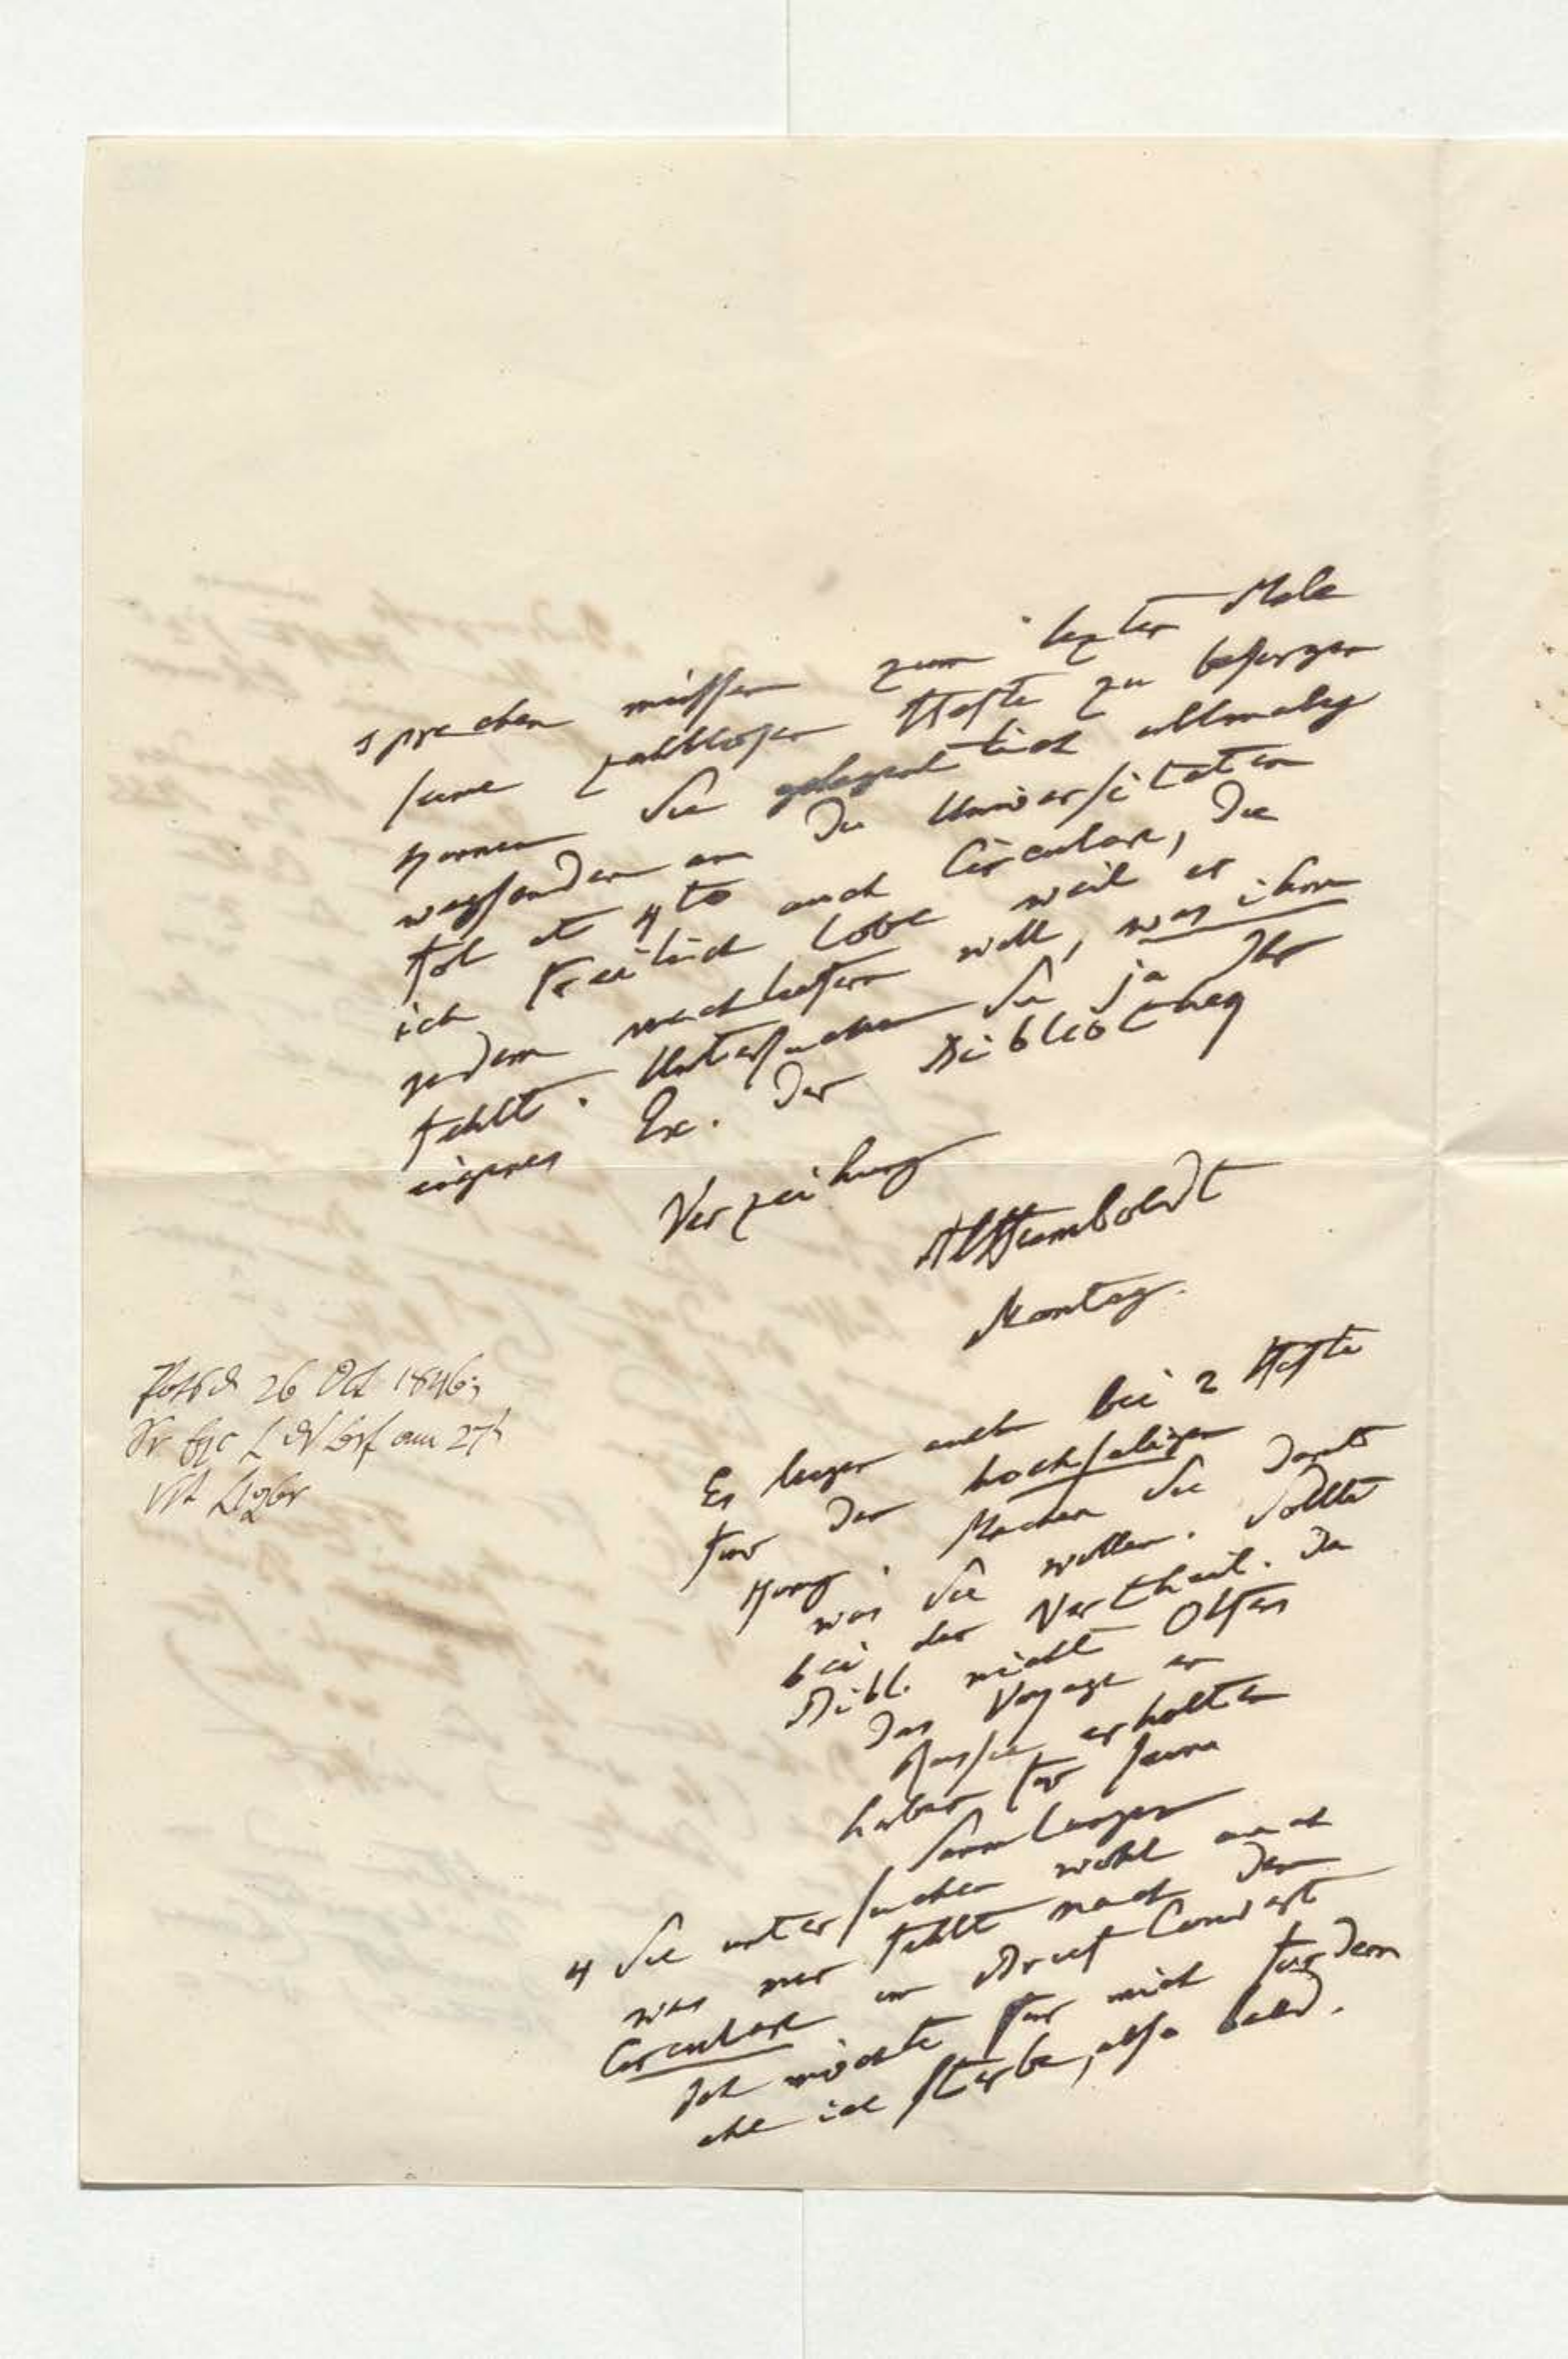 sprechen müssen zum lezten Male
seine zahllosen Hefte zu besorgen
können Sie gelegentlich allmalig
wegsenden an die Universitäten
fol et 4to auch Circulare, die
ich freilich lobe weil er
jedem nachliefern will, was ihm
fehlt. Untersuchen Sie ja Ihr
eigenes Ex. der Bibliotheq
Verzeihung
AlHumboldt
Montag.
Potsd 26 Oct 1846;
am 27t
Es liegen auch bei 2 Hefte
für den hochseligen
König. Machen Sie damit
was Sie wollen. Sollte
bei der Vertheil. die
Bibl. nicht Olfers
das Voyage en
Russie erhalten
haben für seine
Samlungen
Sie untersuchen wohl auch
was mir fehlt nach dem
Circulare im Brief Couvert
Ich möchte für mich fordern
ehe ich sterbe, also bald.